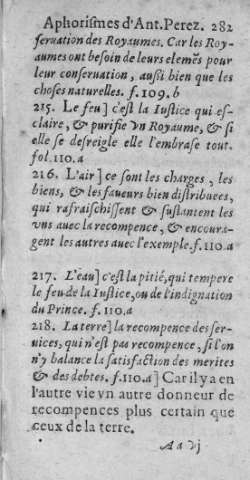 Aphorismes d'Ant. Perez. 282
seruation des Royaumes. Car les Roy-
aumes ont besoin de leurs elemẽs pour
leur conseruation, aussi bien que les
choses naturelles. f.109.b
215. Le feu] c'est la Iustice qui es-
claire, & purifie vn Royaume, & si
elle se desreigle elle l'embrase tout.
fol.110.a
216. L'air] ce sont les charges, les
biens, & les faueurs bien distribuees,
qui rafraischissent & sustantent les
vns auec la recompence, & encoura-
gent les autres auec l'exemple. f.110.a
217. L'eau] c'est la pitié, qui tempere
le feu de la Iustice, ou de l'indignation
du Prince. f.110.a
218. La terre] la recompence des ser-
uices, qui n'est pas recompence, si l'on
n'y balance la satisfaction des merites
& des debtes. f.110.a] Car il y a en
l'autre vie vn autre donneur de
recompences plus certain que
ceux de la terre.
Aa vj